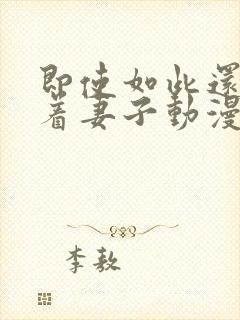 即使如此還
著妻子動漫
李敖